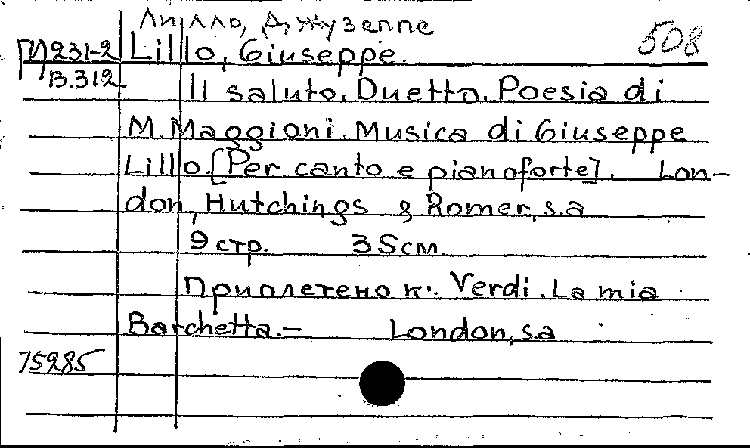 Лилло, Джузеппе
508
П 231-2 Lillo, Giuseppe.
B.312
Il saluto. Duetto. Poesia di
M. Maggioni. Musica di Giuseppe
Lillo. [Per canto e pianoforte]. Lon-
don, Hutchings & Romer, s.a
9 стр. 35 см.
Приплетено к: Verdi. La mia
Barchetta.- London, s.a
75285